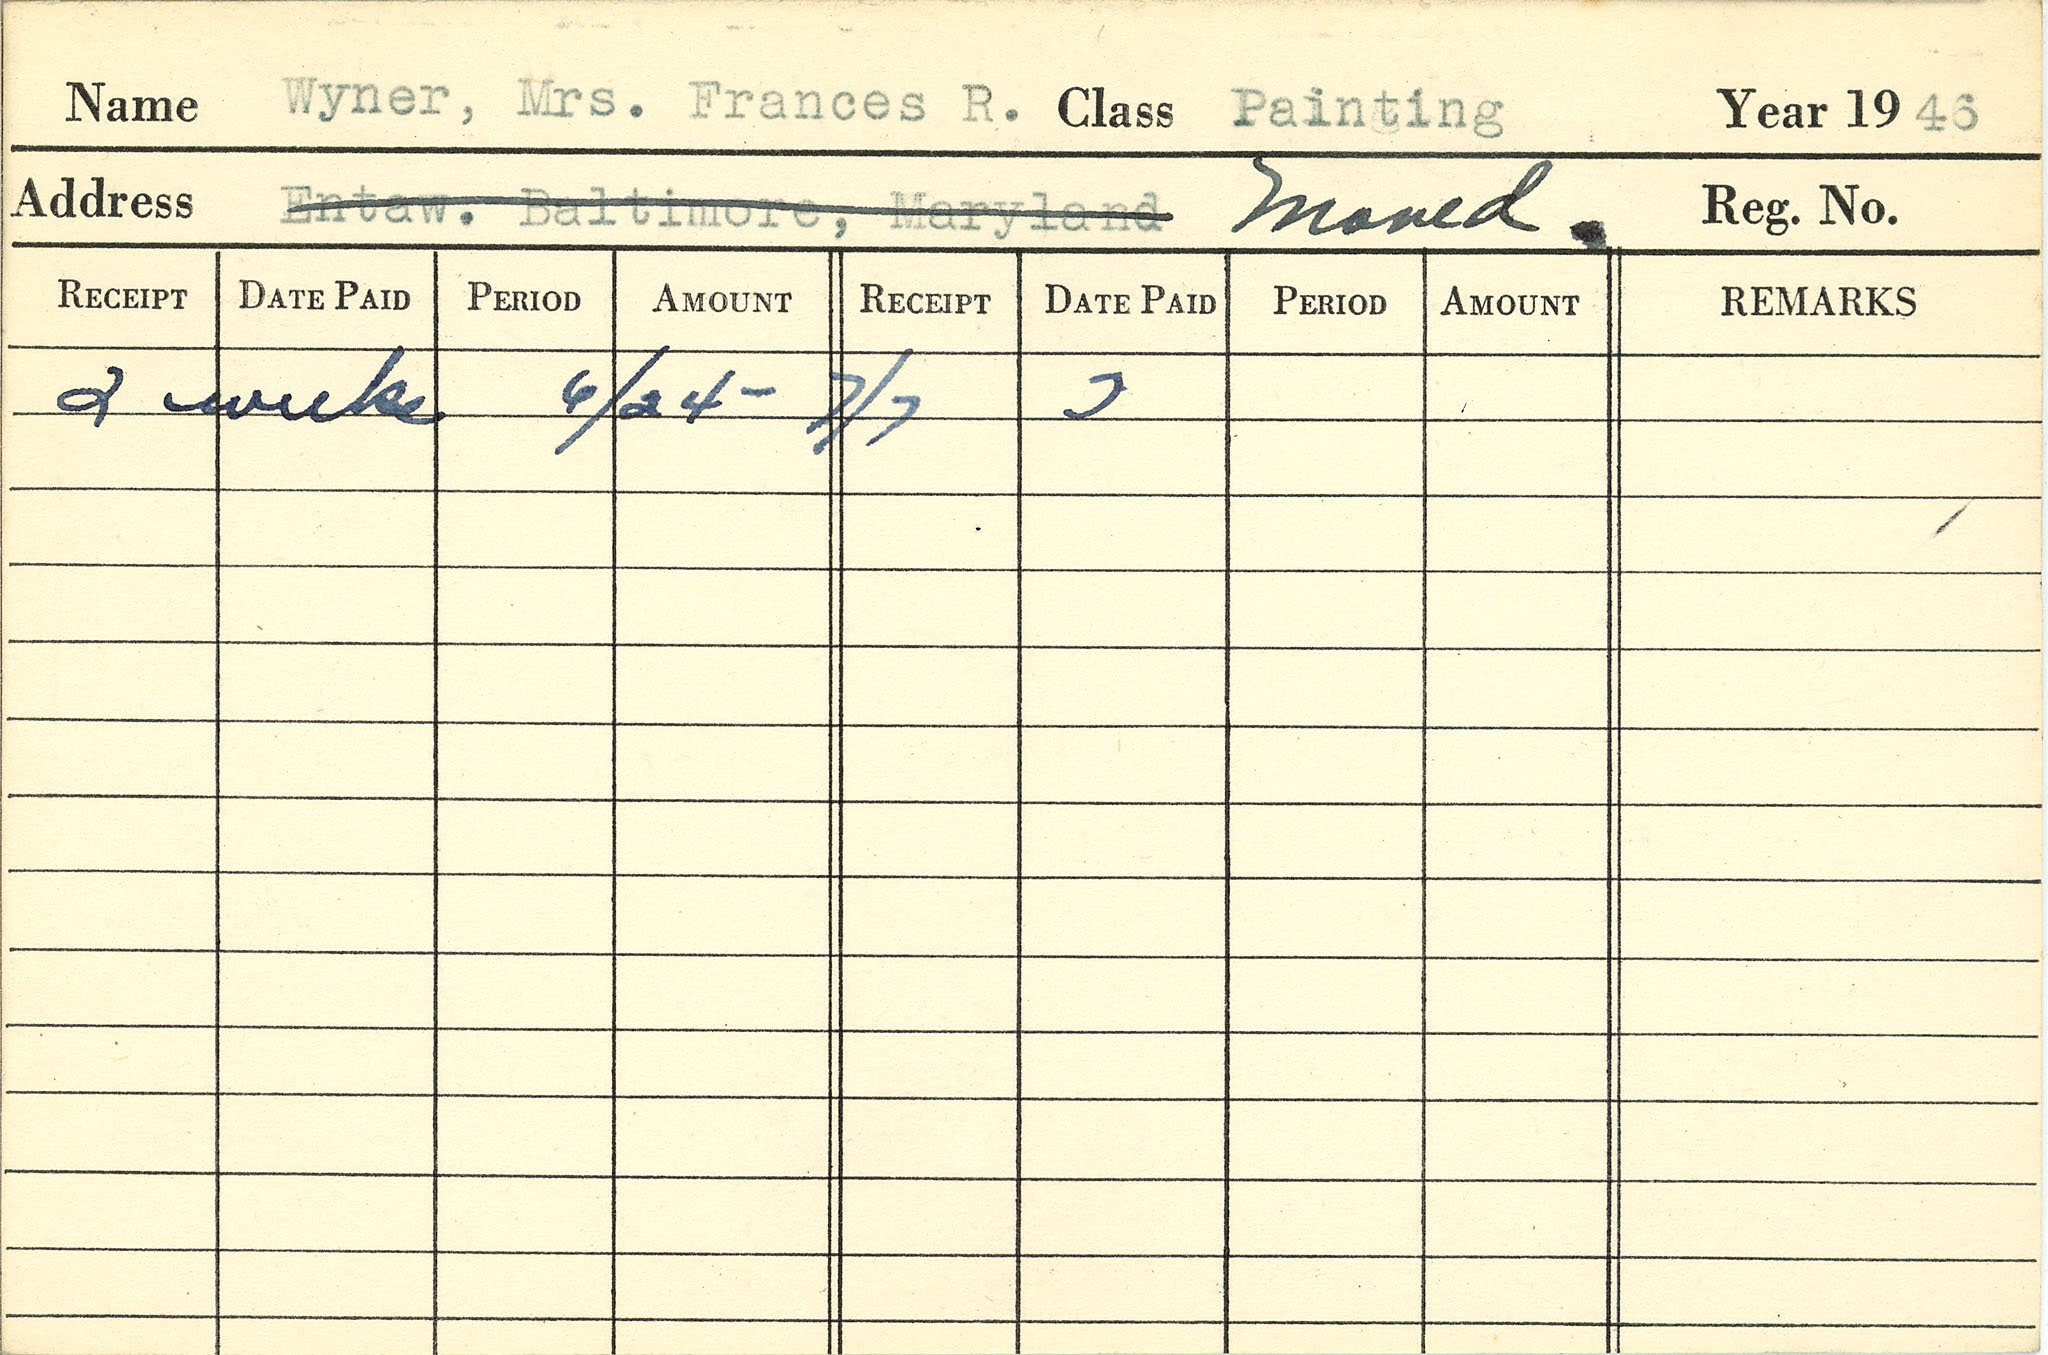 Name Wyner, Mrs. Frances R. Class Painting Year 19 46
Address Entaw. Baltimore, Maryland Moved. Reg. No.
RECEIPT DATE PAID PERIOD AMOUNT RECEIPT DATE PAID PERIOD AMOUNT REMARKS
2 weeks 6/24 - 7/7